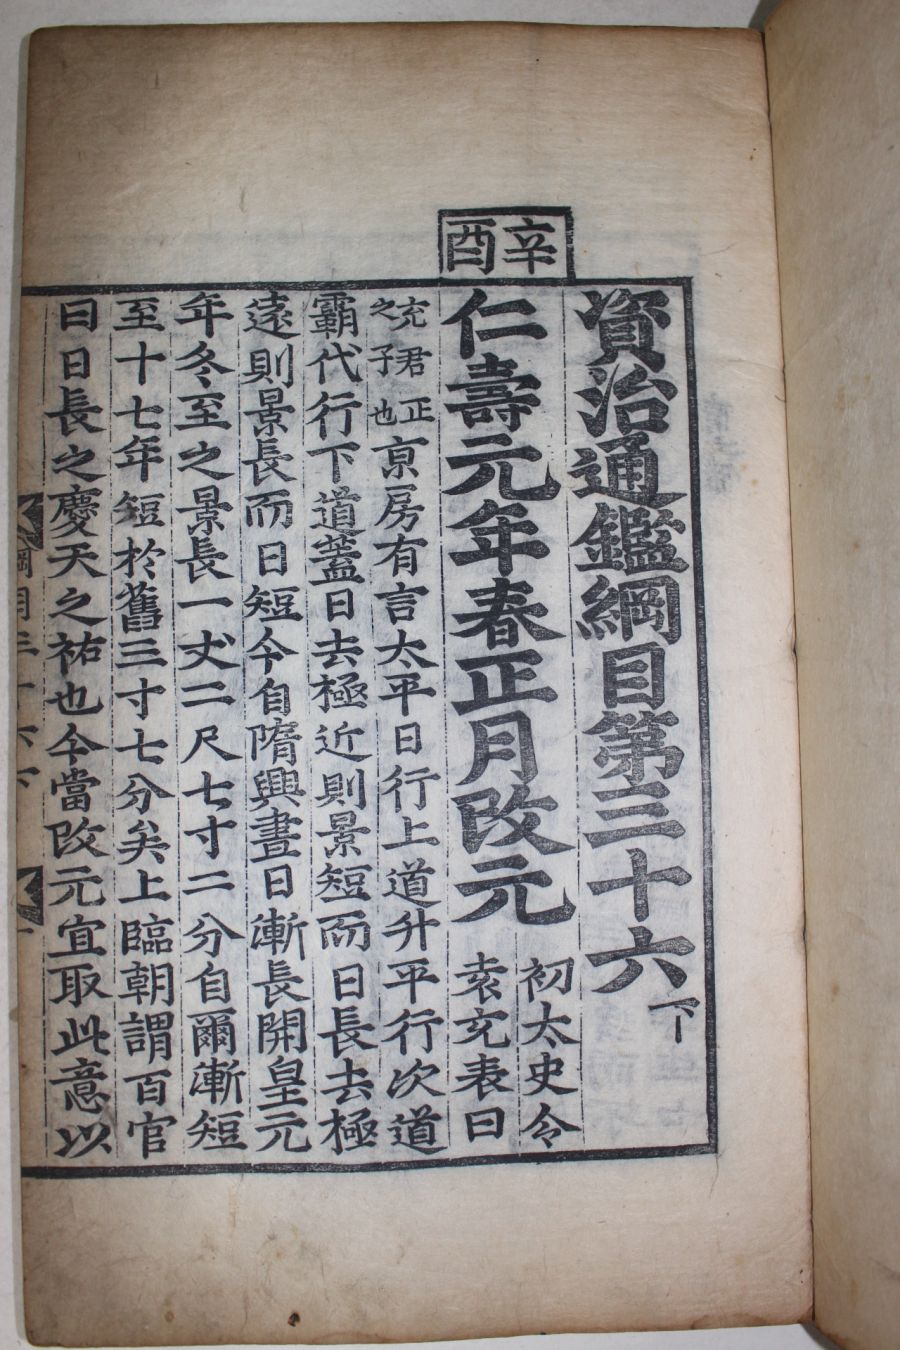 資治通鑑綱目第三十六下
辛酉
仁壽元年春正月改元
初太史令
袁充表曰
充君正
之子也
京房有言太平日行上道升平行次道
霸代行下道蓋日去極近則景短而日長去極
遠則景長而日短今自隋興晝日漸長開皇元
年冬至之景長一丈二尺七寸二分自爾漸短
至十七年短於舊三寸七分矣上臨朝謂百官
曰日長之慶天之祐也今當改元宜取此意以